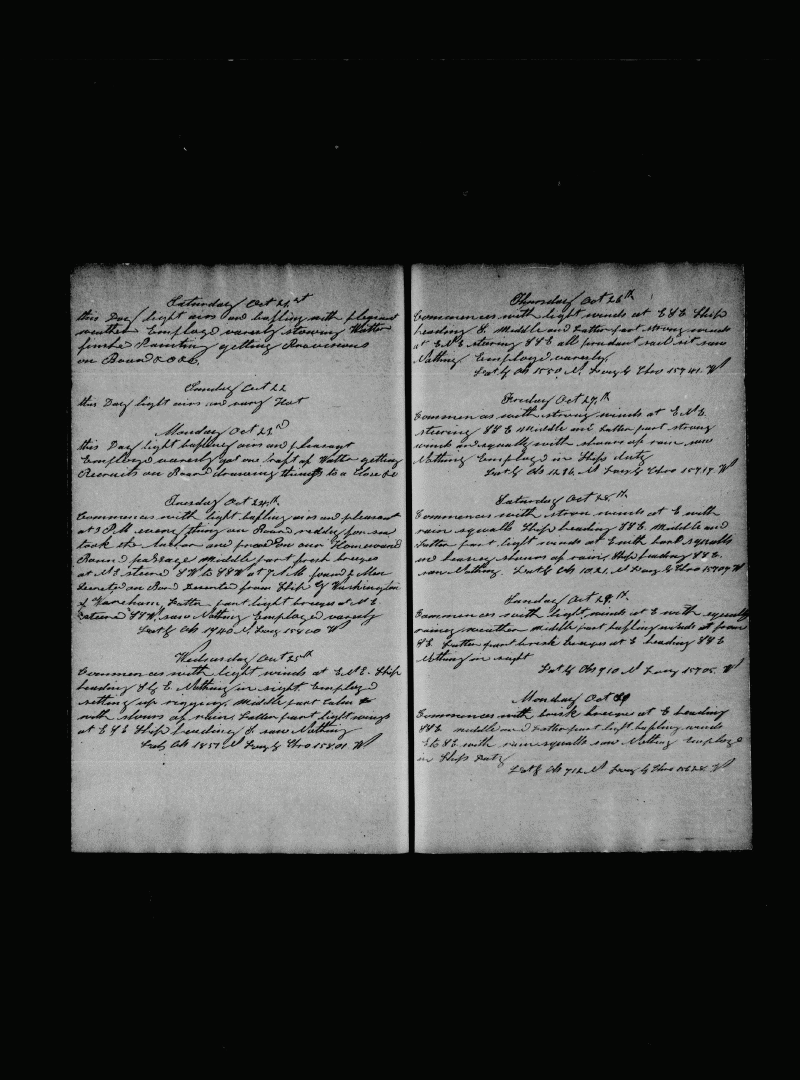 Saturday Oct 21st
this Day light airs and bafling with pleasant
weather Employed variosly stowing Watter
finishe Painting getting Provisions
on Board &c&c
Sunday Oct 22
this Day light airs and vary Hot
Monday Oct 23D
this Day light bafling airs and pleasant
Employed variosly got one raft of Watter getting
Recruits on Board drawing things to a Close &c
Tuesday Oct 24th
Commences with light bafling airs and pleasant
at 5 P.M. every thing on Board reddy for sea
took the and proced on our Homeward
Bound passage Middle part fresh breezes
at N.E. steerd SW to SSW at 7 A.M. found 2 Men
Secreted on Board Deserted from Ship G Washington
of Wareham, Latter part light breezes at N.E.
steerd SSW, saw Nothing Employed variosly
Lat by Ob 1940 N. Long 15400 W
Wednesday Oct 25th
Commences with light winds at E.N.E. Ship
heading S by E Nothing in sight Employed
setting up rigging, Middle part Calm &
with showers of rain, Latter part light winds
at ESE Ship heading S saw Nothing
Lat by Ob 1857 N Long by Chro 15401 W
Thursday Oct 26th
Commences with light winds at ESE Ship
heading S. Middle and Latter part strong winds
at ENE steering SSE all prudent sail sit saw
Nothing Employed variosly,
Lat by Ob 1550 N. Long by Chro 15341. W
Friday Oct 27th
Commences with strong winds at E.N.E.
steering SSE Middle and Latter part strong
winds and squally with showers of rain, saw
Nothing Employed in Ships duty
Lat by Ob 1236, N Long by Chro 15317. W
Saturday Oct 28th
Commences with strong winds at E with
rain squalls Ship heading SSE. Middle and
Latter part light winds at E with hard squalls
and heavy showers of rain, Ship heading SSE.
saw Nothing. Lat by Ob 1021, N Long by Chro 15309 W
Sunday Oct 29th
Commences with light winds at E with squally
rainey weather Middle part bafling winds at from
SE Latter part brisk breezes at E heading SSE
Nothing in sight
Lat by Ob 910 N Long 15305. W
Monday Oct 30
Commences with brisk breezes at E heading
SSE. Middle and Latter part light bafling winds
E to SE with rain squalls saw Nothing Employed
in Ships Duty
Lat by Ob 712 N Long by Chro W